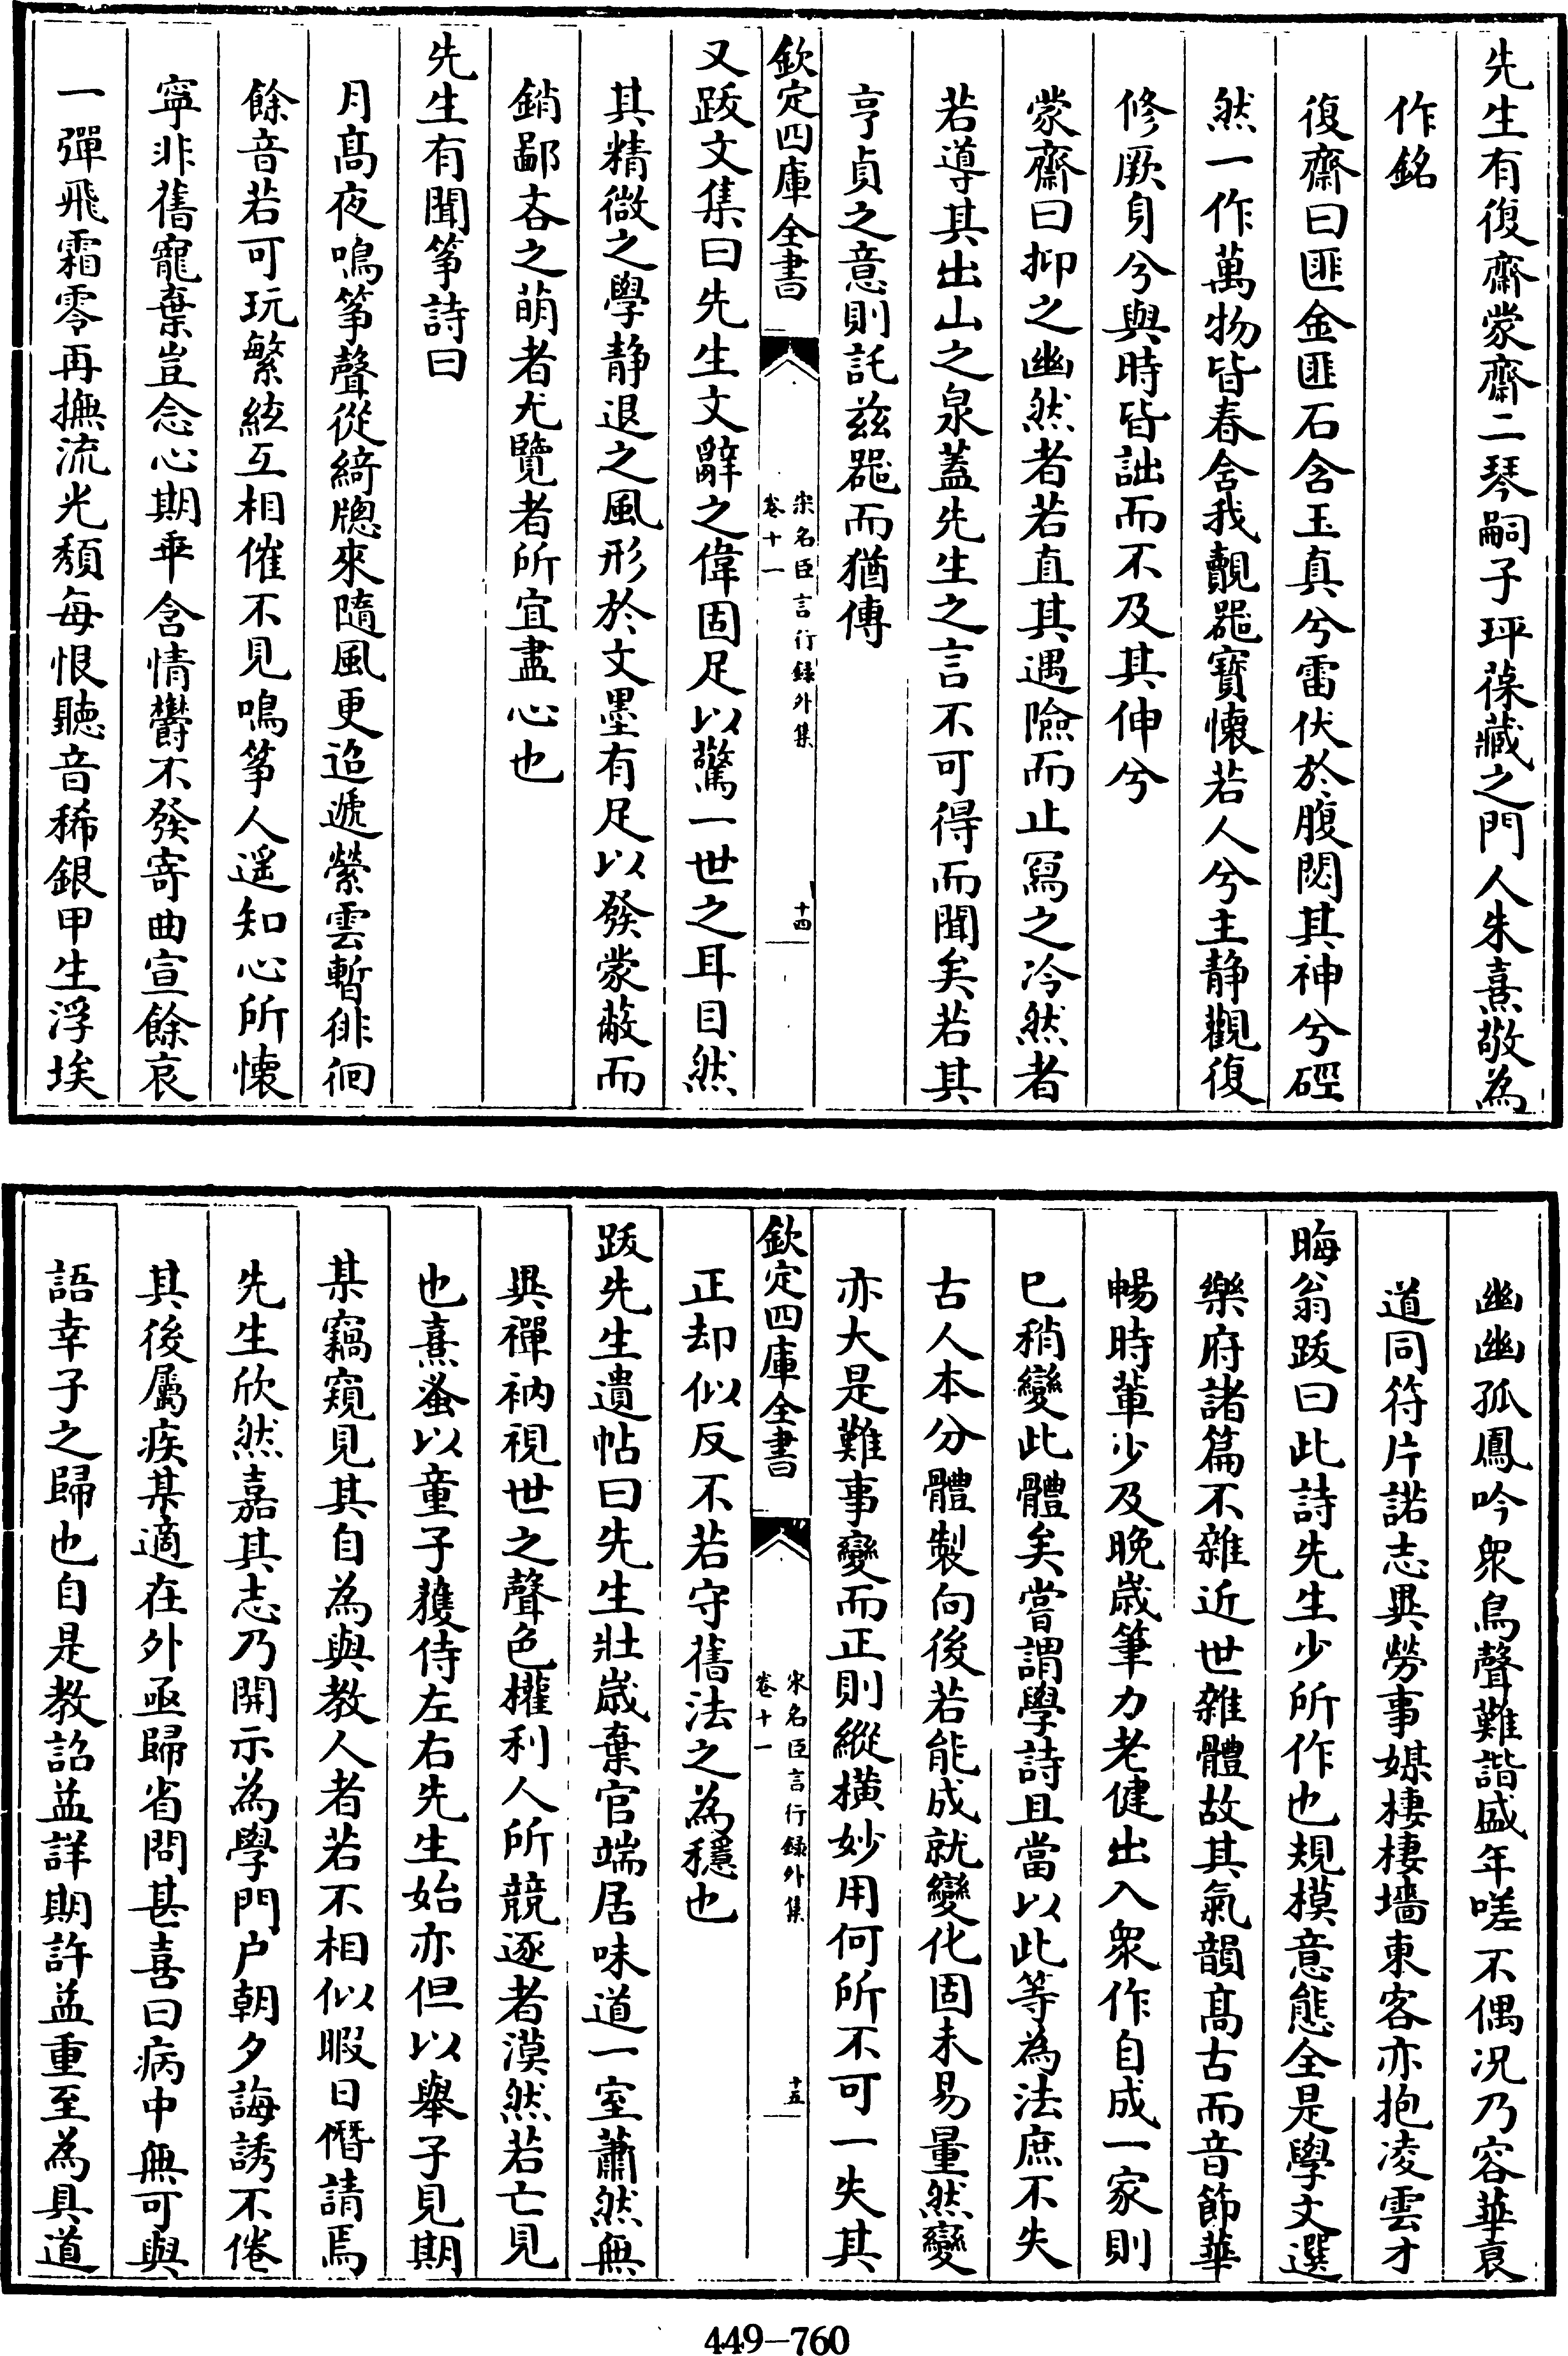 先生有復齋蒙齋二琴嗣子玶葆藏之門人朱熹敬為
作銘
復齋曰匪金匪石含玉真兮雷伏於腹閟其神兮硜
然一作萬物皆春舍我覿噐寶懐若人兮主静觀復
修厥身兮與時皆詘而不及其伸兮
蒙齋曰抑之幽然者若直其遇險而止冩之冷然者
若導其出山之泉蓋先生之言不可得而聞矣若其
亨貞之意則託兹噐而猶傳
欽定四庫全書
宋名臣言行録外集
卷十一
十四
又䟦文集曰先生文辭之偉固足以驚一世之耳目然
其精微之學静退之風形於文墨有足以發蒙蔽而
銷鄙吝之萌者尤覽者所宜盡心也
先生有聞筝詩曰
月髙夜鳴筝聲從綺牕來隨風更迢遞縈雲暫徘徊
餘音若可玩繁絃互相催不見鳴筝人遥知心所懐
寧非舊寵棄豈念心期乖含情欝不發寄曲宣餘哀
一彈飛霜零再撫流光頽每恨聽音稀銀甲生浮埃
幽幽孤鳳吟衆鳥聲難諧盛年嗟不偶况乃容華衰
道同符片諾志異勞事媒棲棲墻東客亦抱凌雲才
晦翁䟦曰此詩先生少所作也規模意態全是學文選
樂府諸篇不雜近世雜體故其氣韻髙古而音節華
暢時輩少及晚嵗筆力老健出入衆作自成一家則
已稍變此體矣嘗謂學詩且當以此等為法庶不失
古人本分體製向後若能成就變化固未易量然變
亦大是難事變而正則縱横妙用何所不可一失其
欽定四庫全書
宋名臣言行録外集
卷十一
十五
正却似反不若守舊法之為穏也
䟦先生遺帖曰先生壯嵗棄官端居味道一室蕭然無
異禪衲視世之聲色權利人所競逐者漠然若亡見
也熹蚤以童子獲侍左右先生始亦但以舉子見期
某竊窺見其自為與教人者若不相似暇日僭請焉
先生欣然嘉其志乃開示為學門户朝夕誨誘不倦
其後屬疾某適在外亟歸省問甚喜曰病中無可與
語幸子之歸也自是教詔益詳期許益重至為具道
449-760